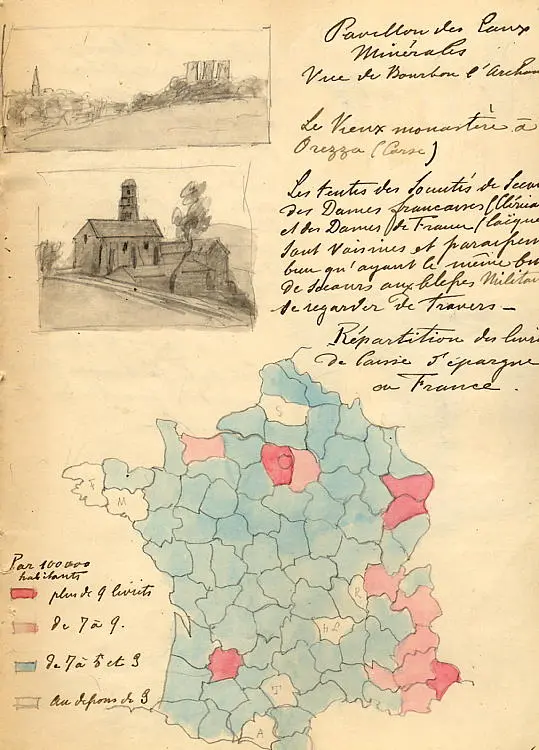 Pavillon des Eaux
Minérales
Vue de Bourbon l'Archam
Le Vieux monastère à
Orezza (Corse)
Les tentes des Comités de Secou
des Dames françaises (Cléricales
et des Dames de France (laïque
sont voisines et paraissent
bien qu'ayant le même but
de secours aux blessés Militai
se regarder de travers —
Répartition des livre
de Caisse d'épargne
en France.
S
F
M
Par 100000
habitants
plus de 9 livrets
R
de 7 à 9.
H L
de 7 à 5 et 3
T
au dessous de 3
A